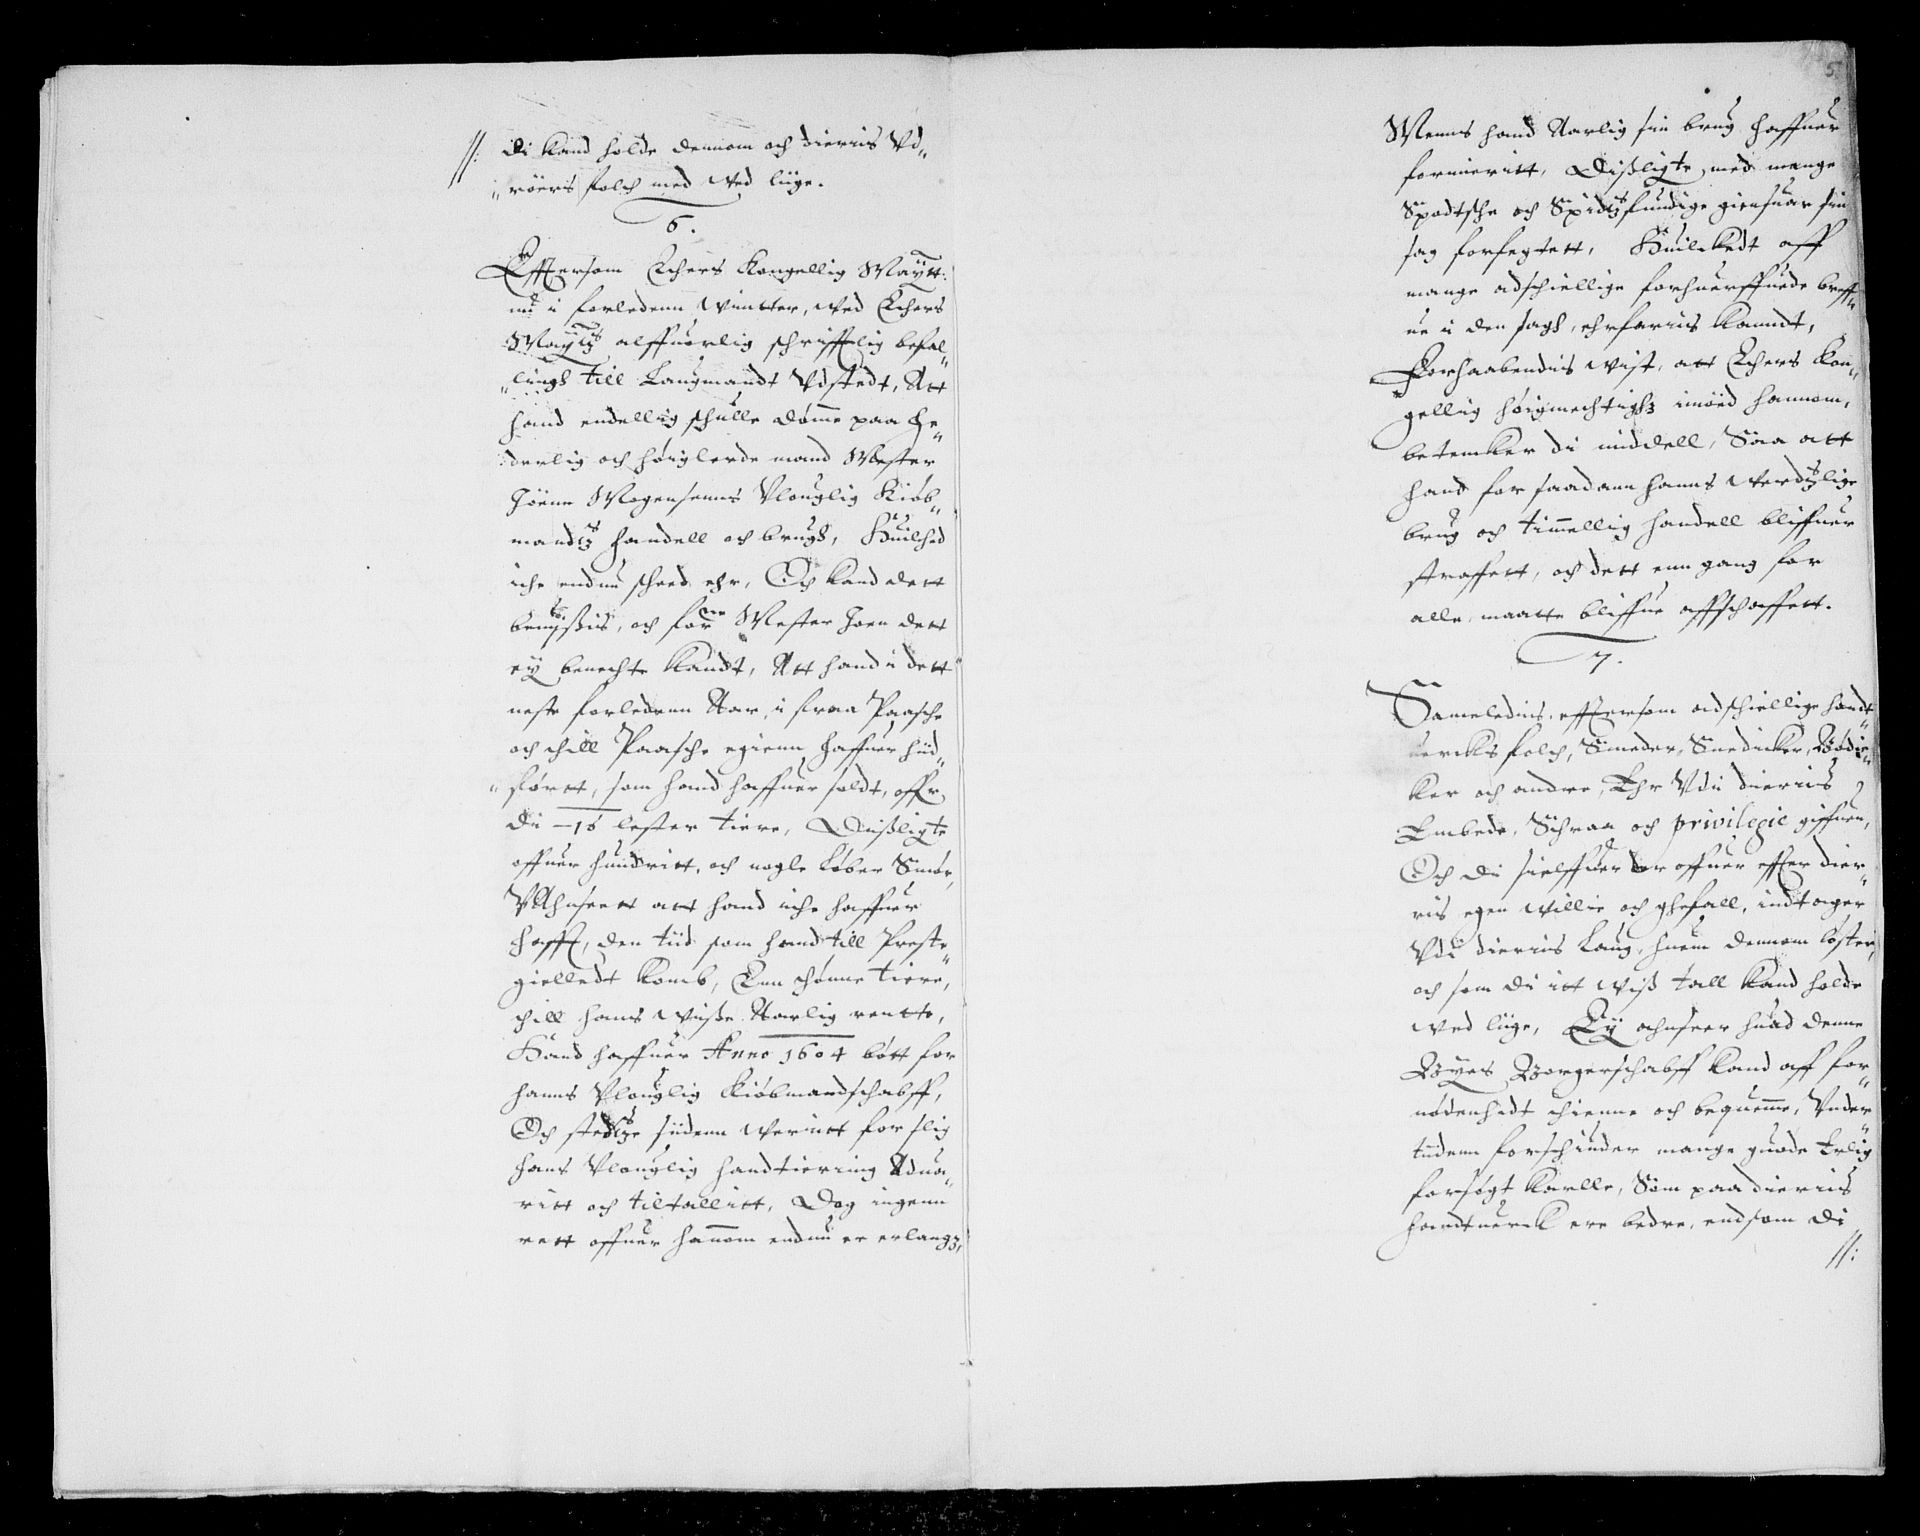 //: di kand holde dennom och dieriis Vd„
„röers folch med wed liige.
6.
Effttersom Eders Kongellig Maytt:
nu i forledenn wintter, wed Eders
Maytz alffuorlig schrifftlig befal„
„lingh till Laugmandt Vdstedt, Att
hand endellig schulle dømme paa he„
derlig och høiglerde mand Mester
Jöenn Mogensenns Vlouglig Kiøb„
mandtz handell och brugh, Huilched
iche endnu scheed ehr, Och kand dett
beuissis, och forne Mester Joen dett
ey benechte kandt, Att hand i dett
neste forledenn Aar, i fraa Paasche
och thill Paasche egienn, haffuer hiid„
„førtt, som hand haffuer soldt, offr
di 16 lester tiere, Dissligte
offuer hundritt, och nogle løber Smør,
VAhnseett att hand iche haffuer
hafft, den tiid som hand till Preste„
gielledt komb, Enn thønne tiere,
thill hans wisse Aarlig rentte,
Hand haffuer Anno 1604 bött for
hanns Vlouglig Kiøbmandschabff,
Och stedtze siidenn werintt for slig
hans Vlouglig handtiering Adua„
ritt och tiltallitt, Dog ingenn
rett offuer hannom endnu er erlangt,
5.
Menns hand Aarlig sin brug haffuer
formieritt, Dissligte, med mange
Spodtsche och Spidtzfundige giensuar sin
sag forfegtett, Huilckedt aff
mange adschiellige forhuerffuede breff„
ue i den sagh, ehrfariis kanndt,
Forhaabendiis wist, att Eders Kon„
gellig høigmechtighz imöed hannom,
betencker di middell, Saa att
hand for saadann hanns werdtzlige
brug och timmellig handell bliffuer
straffett, och dett enn gang for
alle, maatte bliffue affschaffett.
7.
Sameledins, effttersom adschiellige handt„
uercks folch, Smeder, Snedicker, Bødi„
ker och andre, Ehr Vdi dieriis
Embede, Schraa och privilegie giffuen,
Och di sielffuer der offuer effter dier„
ris egen willie och ghefall, indtager
Vdi dieriis Laug, huem dennom løster,
och som di itt wiss tall kand holde
wed liige, Ey ahnseer huad denne
Byes Borgerschabff kand aff for„
nødenhedt thienne och bequemme, Vnder„
tiidenn forschiuder mange guode Erlig
forsøgt Karlle, Som paa dieriis
handtuerck ere bedre, endsom di
//: